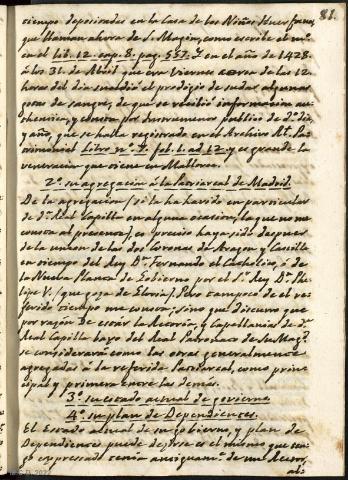 81.
tiempo depositadas en la Casa de los Niños Huerfanos,
que llaman ahora de S. Magin, como escribe el mº.
en el lib. 12. cap. 8. pag. 557. Y en el año de 1428.
á los 31. de Abril que era Viernes acerca de las 12.
horas del dia sucedió el prodigio de sudar algunas
gotas de sangre, de que se recibió informacion au-
thentica, y consta por instrumento publico de dº. dia,
y año, que se halla registrado en el Archivo Rl. Pa-
trimonial Libro nº. 9. fol. 1. ad 12. y es grande la
veneracion que tiene en Mallorca.
2º. su agregacion á la Patriarcal de Madrid.
De la agregacion (si la ha havido en particular
de dª. Real Capilla en alguna ocasion, la que no me
consta al presente) es preciso haya sido despues
de la union de las dos Coronas de Aragon y Castilla
en tiempo del Rey Dn. Fernando el Catholico, ó de
la Nueva Planta de Gobierno por el Sr. Rey Dn. Phe-
lipe V. (que goza de Gloria). Pero tampoco de el re-
ferido tiempo me consta, sino que discurro que
por razon de estar la Rectoria, y Capellanias de dª.
Real Capilla baxo del Real Patronato de Su Magd.
se considerará como las otras generalmente
agregadas á la referida Patriarcal, como prin-
cipal y primera entre las demas.
3º. su estado actual de govierno
4º. su plan de Dependientes.
El Estado actual de su gobierno, y plan de
Dependientes puede dezirse es el mismo que ten-
go expressado tenia antiguamte. de un Rector,